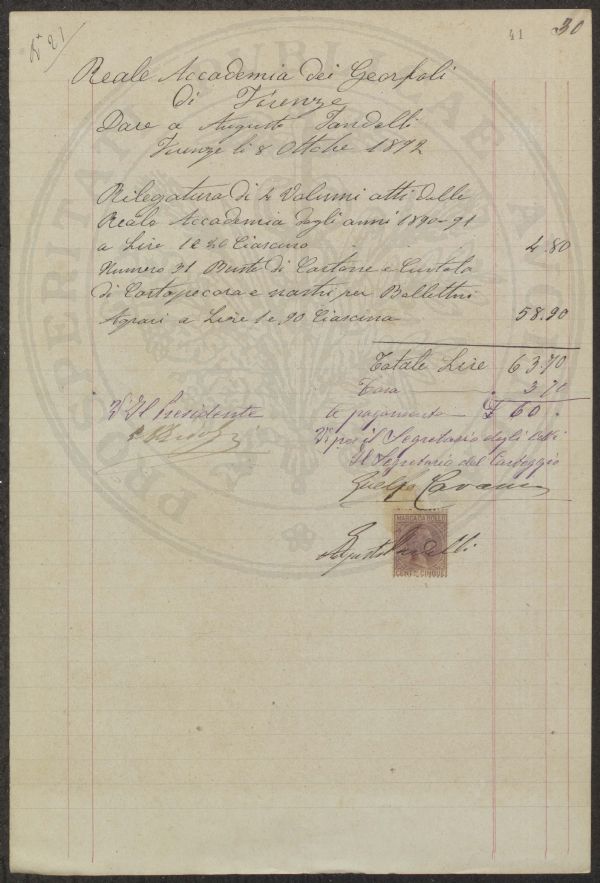 N° 21
41
30
Reale Accademia dei Georfoli
di Firenze
Dare a Augusto Fandelli
Firenze li 8 Ottbre 1892
Rilegatura di 4 Volumi atti della
Reale Accademia degli anni 1890-91
a Lire 1 e 20 Ciascuno 4.80
Numero 31 Buste di Cartone e Custola
di Cartapecora e nastri per Bollettini
Agrari a Lire 1 e,90 Ciascuna 58.90
Totale Lire 63.70
Tara 3.70
te pagamento £ 60.
V° Il Presidente
V° per il Segretario degli Atti
Il Segretario del Carteggio
Guelfo Cavanna
MARCA DA BOLLO
Augusto
CENT.MI CINQUE
PROSPERITATI PUBLICAE AUGENDAE